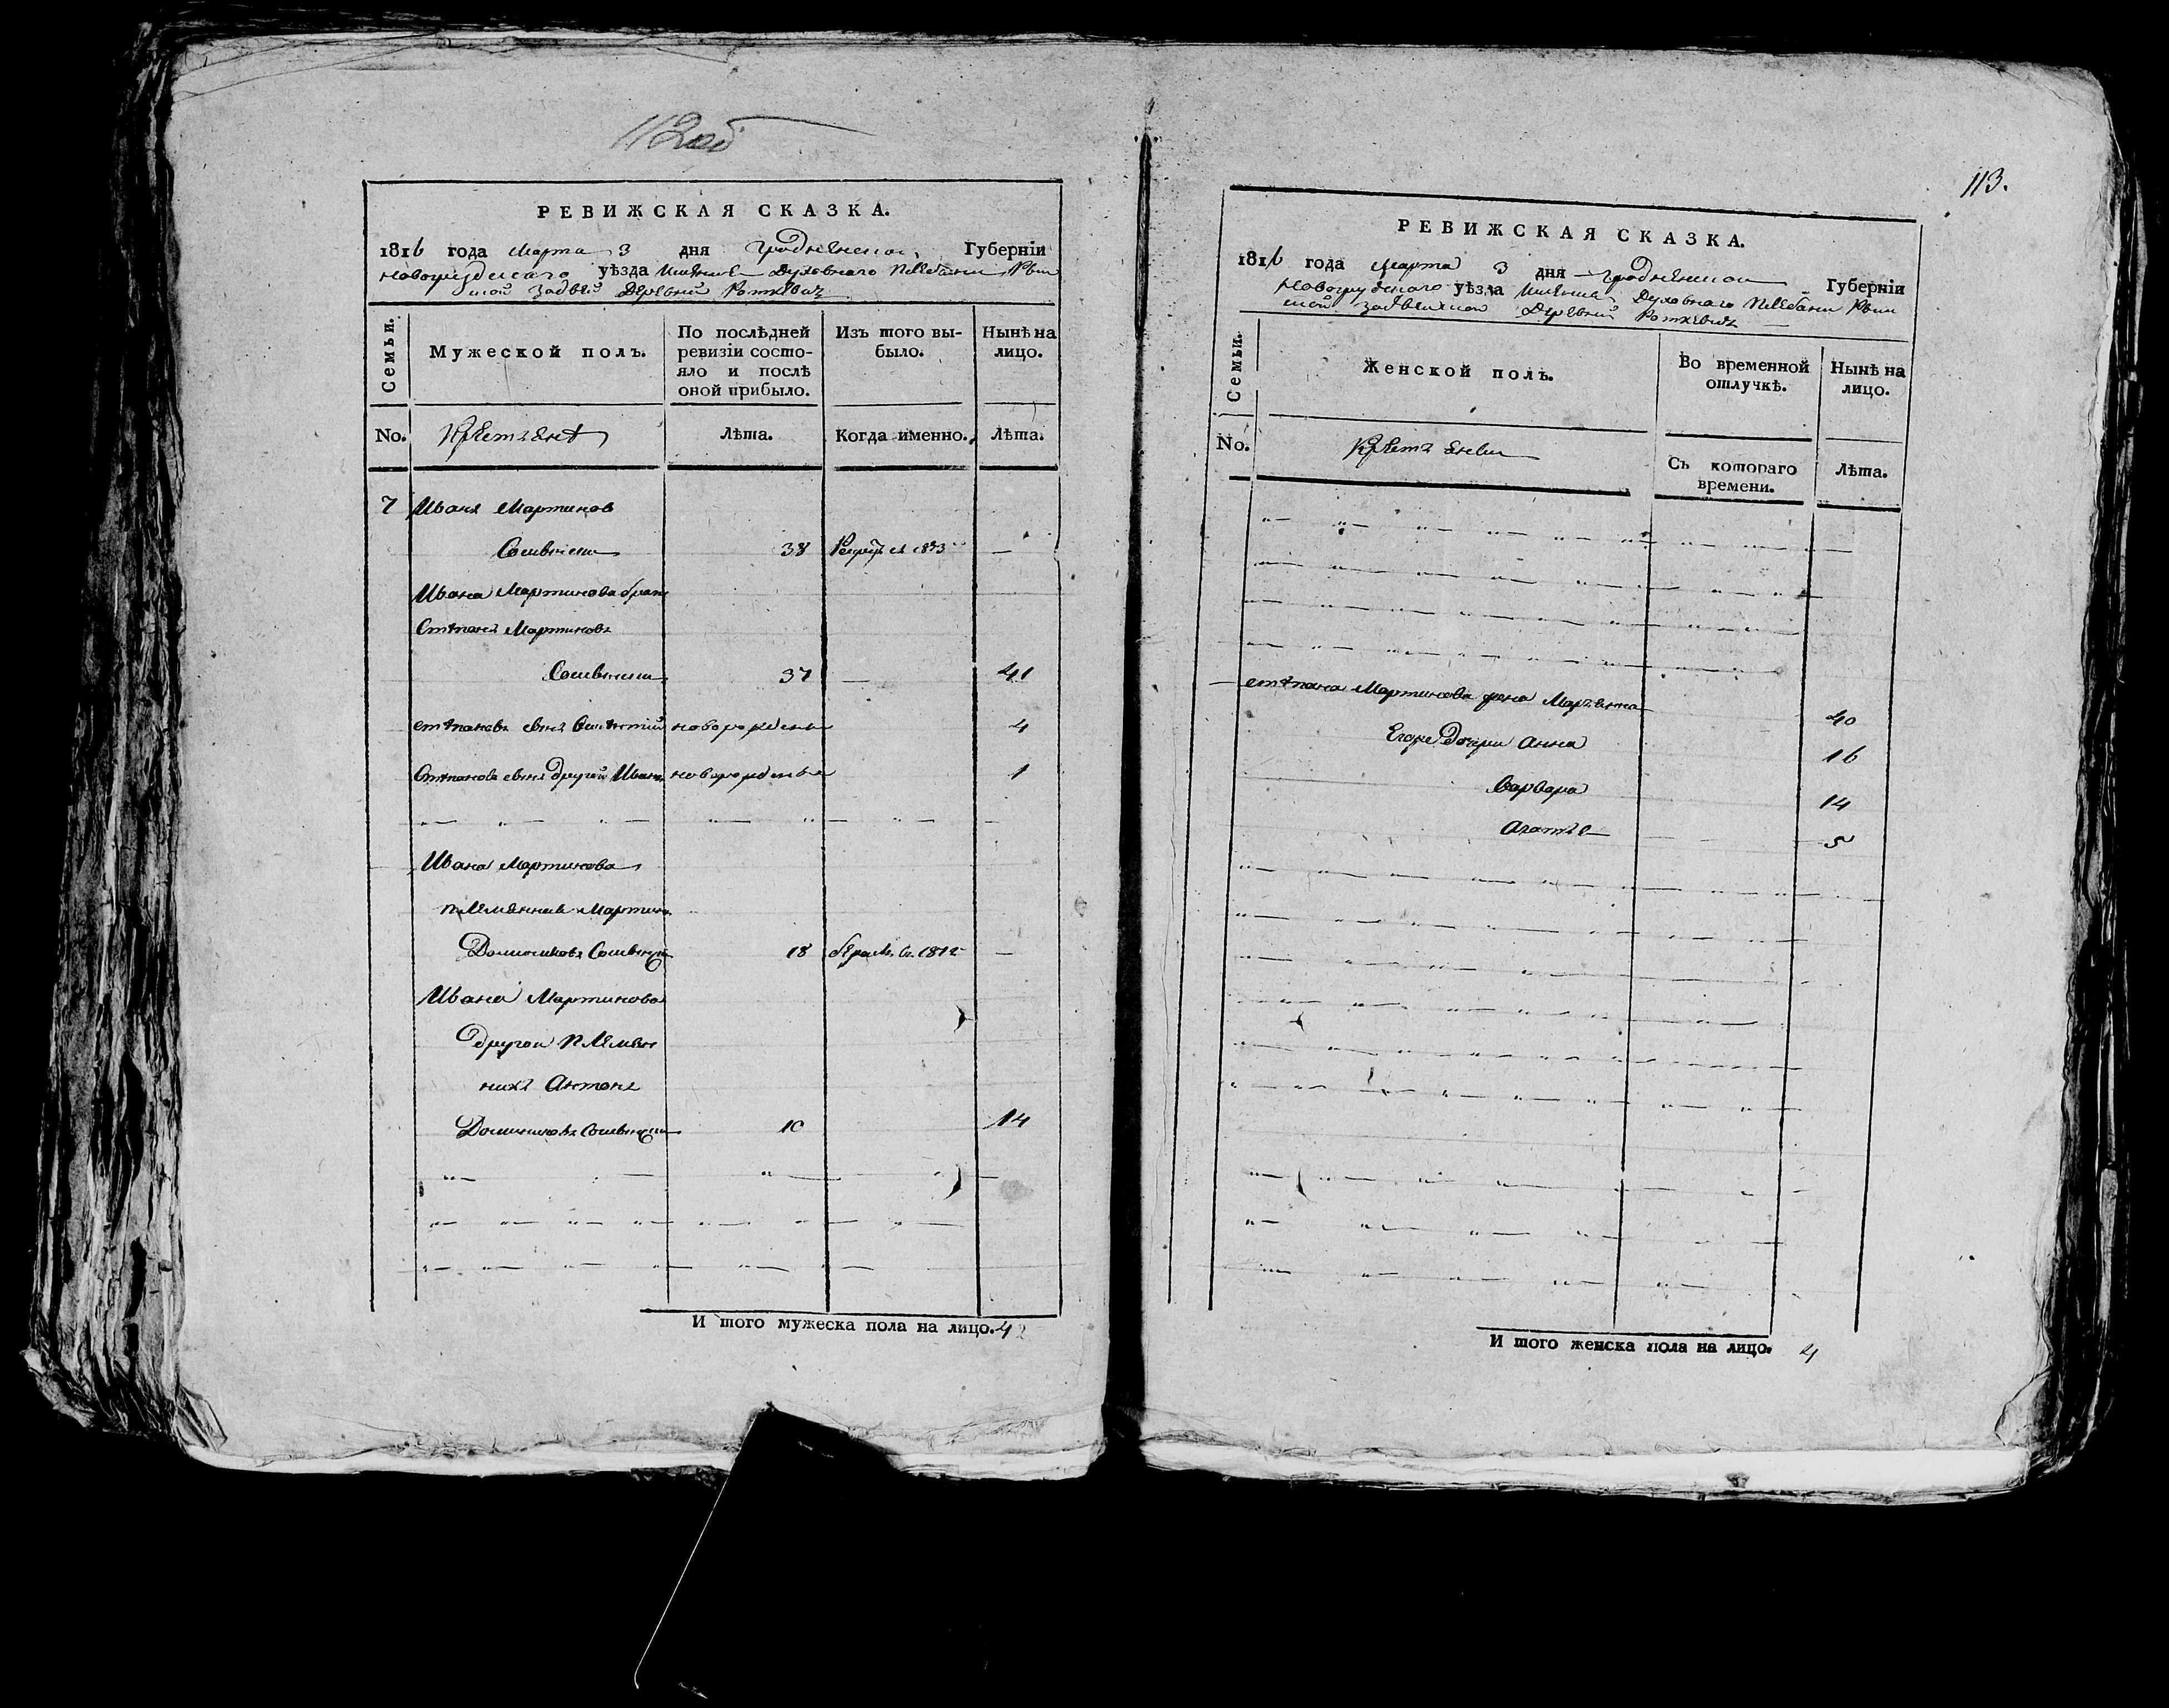 112об
РЕВИЖСКАЯ СКАЗКА.
1816 года Марта 3 дня Гродненской Губерніи
Новогрудскаго уѣзда Имѣние Духовнаго Плебани
Деревни Роткевич
Семьи.
Мужеской полъ.
По послѣдней ревизіи состояло и послѣ оной прибыло.
Изъ того выбыло.
Нынѣ на лицо.
No.
Лѣта.
Когда именно.
Лѣта.
7 Иванъ Мартинов
38 1813 —
Ивана Мартинова брат
Степанъ Мартиновъ
37 — 41
Степановъ сынъ новорожденъ 4
Степановъ сынъ другой Иванъ новорожденъ 1
Ивана Мартинова
племянник Мартин
Доминиковъ 18 1812 —
Ивана Мартинова
другои племян
никъ Антонъ
Доминиковъ 10 14
И того мужеска пола на лицо. 4
113.
РЕВИЖСКАЯ СКАЗКА.
1816 года Марта 3 дня Гродненской Губерніи
Новогрудскаго уѣзда Имѣния Духовнаго Плебани
Деревни Роткевич
Семьи.
Женской полъ.
Во временной отлучкѣ.
Нынѣ на лицо.
No.
Съ котораго времени.
Лѣта.
Степана Мартинова жена Марьянна 40
Егоже Дочери Анна 16
Варвара 14
Агатъя 5
И того женска пола на лицо. 4